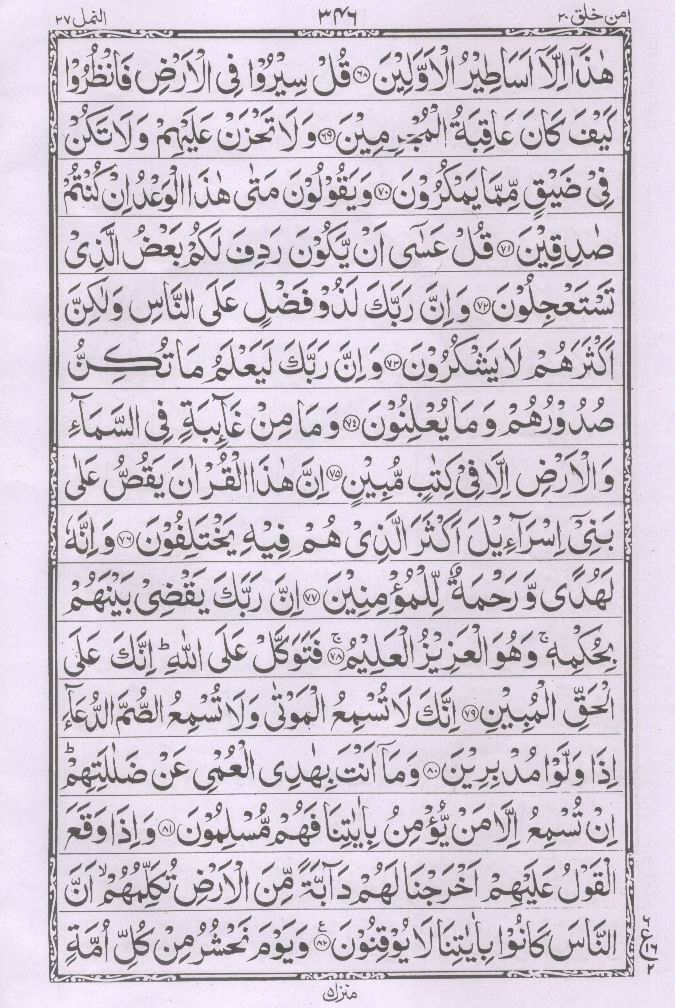 امن خلق ٢٠
٣٤٦
النمل ٢٧
هٰذَاۤ اِلَّاۤ اَسَاطِیْرُ الْاَوَّلِیْنَ ﴿٦٨﴾ قُلْ سِیْرُوْا فِی الْاَرْضِ فَانْظُرُوْا
كَیْفَ كَانَ عَاقِبَةُ الْمُجْرِمِیْنَ ﴿٦٩﴾ وَلَا تَحْزَنْ عَلَیْهِمْ وَلَا تَكُنْ
فِیْ ضَیْقٍ مِّمَّا یَمْكُرُوْنَ ﴿٧٠﴾ وَیَقُوْلُوْنَ مَتٰی هٰذَا الْوَعْدُ اِنْ كُنْتُمْ
صٰدِقِیْنَ ﴿٧١﴾ قُلْ عَسٰۤی اَنْ یَّكُوْنَ رَدِفَ لَكُمْ بَعْضُ الَّذِیْ
تَسْتَعْجِلُوْنَ ﴿٧٢﴾ وَاِنَّ رَبَّكَ لَذُوْ فَضْلٍ عَلَی النَّاسِ وَلٰكِنَّ
اَكْثَرَهُمْ لَا یَشْكُرُوْنَ ﴿٧٣﴾ وَاِنَّ رَبَّكَ لَیَعْلَمُ مَا تُكِنُّ
صُدُوْرُهُمْ وَمَا یُعْلِنُوْنَ ﴿٧٤﴾ وَمَا مِنْ غَآىِٕبَةٍ فِی السَّمَآءِ
وَالْاَرْضِ اِلَّا فِیْ كِتٰبٍ مُّبِیْنٍ ﴿٧٥﴾ اِنَّ هٰذَا الْقُرْاٰنَ یَقُصُّ عَلٰی
بَنِیْۤ اِسْرَآءِیْلَ اَكْثَرَ الَّذِیْ هُمْ فِیْهِ یَخْتَلِفُوْنَ ﴿٧٦﴾ وَاِنَّهٗ
لَهُدًی وَّرَحْمَةٌ لِّلْمُؤْمِنِیْنَ ﴿٧٧﴾ اِنَّ رَبَّكَ یَقْضِیْ بَیْنَهُمْ
بِحُكْمِهٖ ۚ وَهُوَ الْعَزِیْزُ الْعَلِیْمُ ۚ﴿٧٨﴾ فَتَوَكَّلْ عَلَی اللّٰهِ ؕ اِنَّكَ عَلَی
الْحَقِّ الْمُبِیْنِ ﴿٧٩﴾ اِنَّكَ لَا تُسْمِعُ الْمَوْتٰی وَلَا تُسْمِعُ الصُّمَّ الدُّعَآءَ
اِذَا وَلَّوْا مُدْبِرِیْنَ ﴿٨٠﴾ وَمَاۤ اَنْتَ بِهٰدِی الْعُمْیِ عَنْ ضَلٰلَتِهِمْ ؕ
اِنْ تُسْمِعُ اِلَّا مَنْ یُّؤْمِنُ بِاٰیٰتِنَا فَهُمْ مُّسْلِمُوْنَ ﴿٨١﴾ وَاِذَا وَقَعَ
الْقَوْلُ عَلَیْهِمْ اَخْرَجْنَا لَهُمْ دَآبَّةً مِّنَ الْاَرْضِ تُكَلِّمُهُمْ ۙ اَنَّ
النَّاسَ كَانُوْا بِاٰیٰتِنَا لَا یُوْقِنُوْنَ ﴿٨٢﴾ ع وَیَوْمَ نَحْشُرُ مِنْ كُلِّ اُمَّةٍ
٢
ع ١٦
٢
منزل ٥